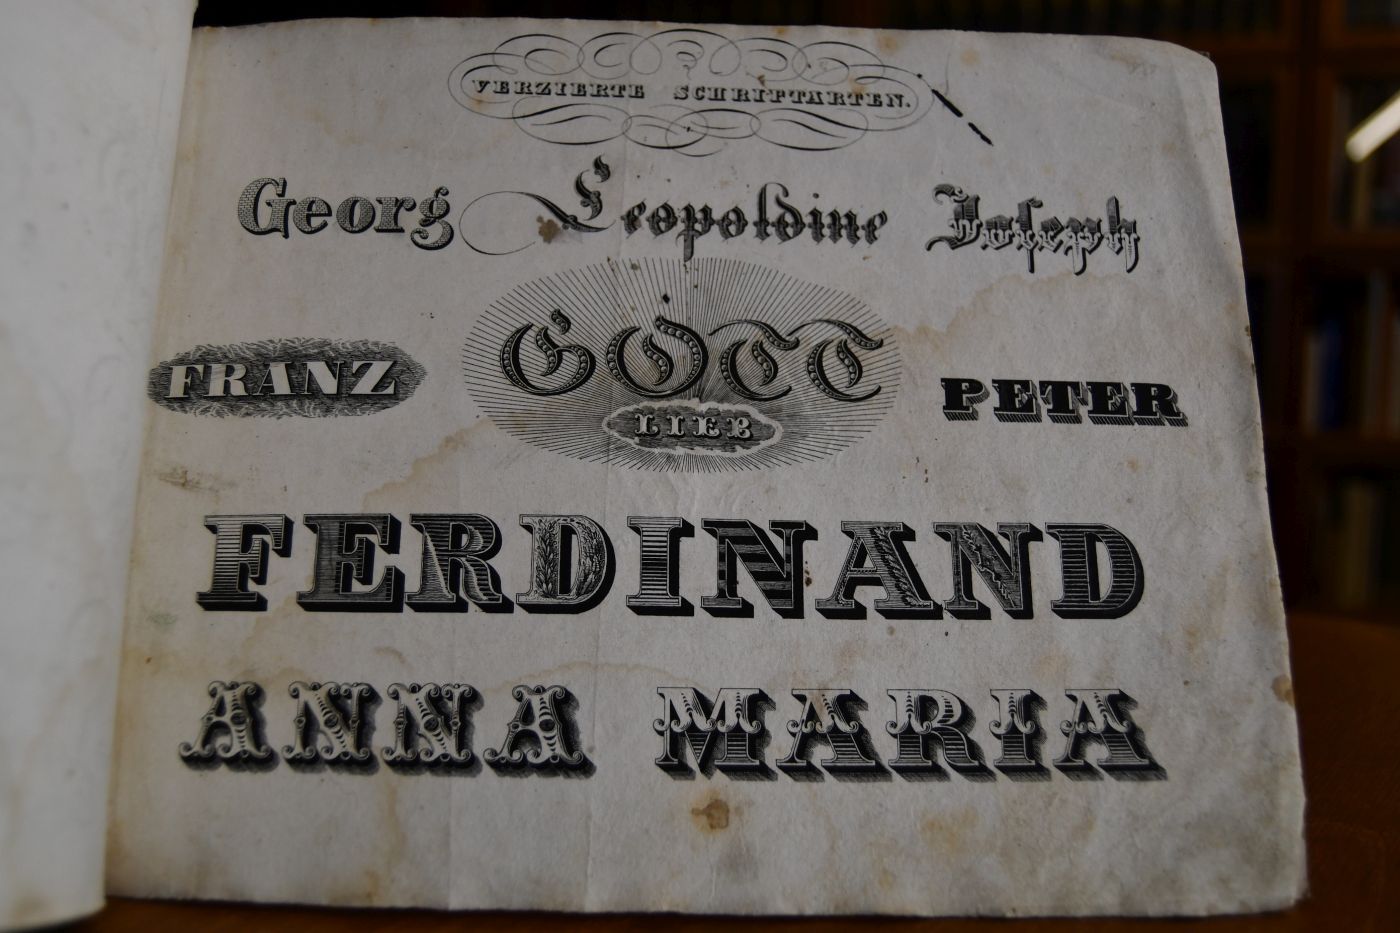 VERZIERTE SCHRIFTARTEN.
Georg Leopoldine Joseph
FRANZ GOTT PETER
LIEB
FERDINAND
ANNA MARIA